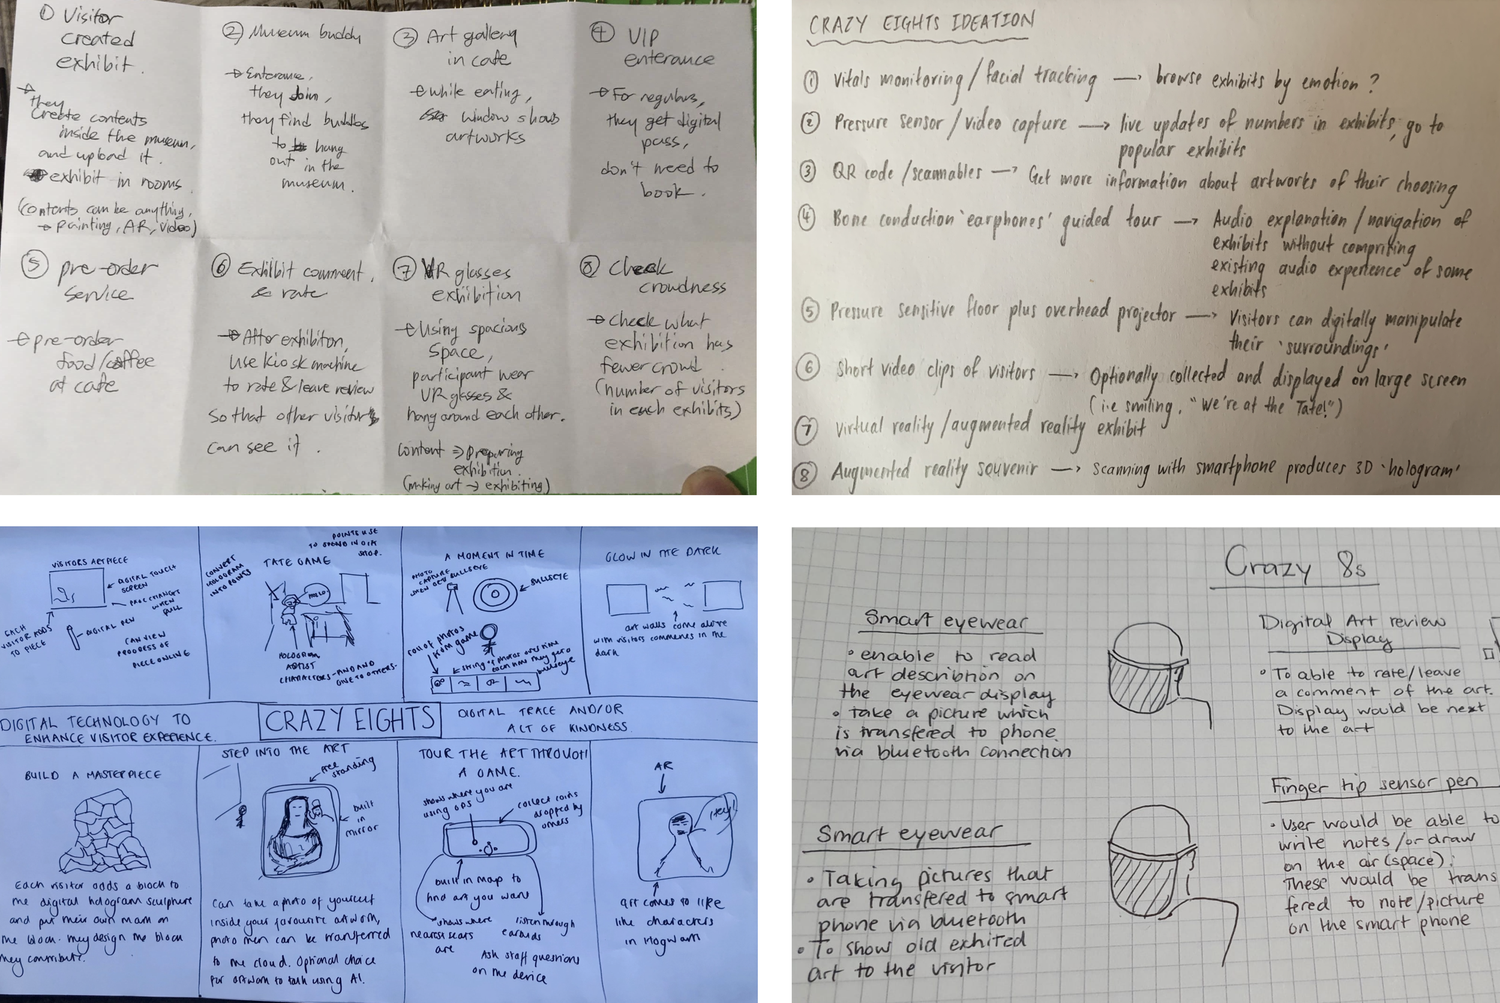 ① Visitor
created
exhibit.
→ they
create contents
inside the museum,
and upload it.
exhibit in rooms.
(contents can be anything,
→ painting, AR, video)
② Museum buddy
→ Enterance,
they join,
they find buddies
to hang
out in the
museum.
③ Art gallery
in cafe
→ while eating,
window shows
artworks
④ VIP
enterance
→ For regulars,
they get digital
pass,
don't need to
book.
⑤ pre-order
service
→ pre-order
food/coffee
at cafe
⑥ Exhibit comment.
& rate
→ After exhibiton,
use kiosk machine
to rate & leave review
so that other visitors
can see it.
⑦ VR glasses
exhibition
→ Using spacious
space,
participant wear
VR glasses &
hang around each other.
content ⇒ preparing
exhibition.
(making art → exhibiting)
⑧ Check
crowdness
→ check what
exhibition has
fewer crowd.
(number of visitors
in each exhibits)
CRAZY EIGHTS IDEATION
① Vitals monitoring / facial tracking → browse exhibits by emotion?
② Pressure sensor / video capture → live updates of numbers in exhibits, go to
popular exhibits
③ QR code / scannables → Get more information about artworks of their choosing
④ Bone conduction 'earphones' guided tour → Audio explanation / navigation of
exhibits without
existing audio experience of some
exhibits
⑤ Pressure sensitive floor plus overhead projector → Visitors can digitally manipulate
their 'surroundings'
⑥ Short video clips of visitors → Optionally collected and displayed on large screen
(i.e smiling, "we're at the Tate!")
⑦ Virtual reality / augmented reality exhibit
⑧ Augmented reality souvenir → scanning with smartphone produces 3D 'hologram'
VISITORS ART PIECE
DIGITAL TOUCH
SCREEN
PAGE CHANGES
WHEN
FULL
EACH
VISITOR ADDS
TO PIECE
DIGITAL PEN
CAN VIEW
PROGRESS OF
PIECE ONLINE
CONVERT
HOLOGRAM
INTO POINTS
POINTS USE
TO SPEND IN
SHOP.
TATE GAME
HELLO
HOLOGRAM
ARTIST
CHARACTERS - AND
GIVE TO OTHERS.
A MOMENT IN TIME
PHOTO
CAPTURE
WHEN
BULLSEYE
BULLSEYE
ROLL OF PHOTOS
FROM GAME
string of photos
each time they get a
bullseye
GLOW IN THE DARK
art walls come alive
with visitors comments in the
dark
DIGITAL TECHNOLOGY TO
ENHANCE VISITOR EXPERIENCE.
CRAZY EIGHTS
DIGITAL TRACE AND/OR
ACT OF KINDNESS.
BUILD A MASTERPIECE
Each visitor adds a block to
the digital hologram sculpture
and put their own mark on
the block. They design the block
they contribute.
STEP INTO THE ART
free
standing
built
in
mirror
Can take a photo of yourself
inside your favourite artwork,
photo then can be transferred
to the cloud. Optional choice
for artwork to talk using AI.
TOUR THE ART THROUGH
A GAME.
shows where you are
using GPS
collect coins
dropped by
others
built in map to
find art you want
shows where
nearest seats
are
listen through
earbuds
Ask staff questions
on the device
AR
Hey!
art comes to life
like characters
in Hogwarts
Crazy 8s
Smart eyewear
• enable to read
art description on
the eyewear display
• take a picture which
is transfered to phone
via bluetooth connection
Digital Art review
Display
• To able to rate/leave
a comment of the art.
Display would be next
to the art
Smart eyewear
• Taking pictures that
are transfered to smart
phone via bluetooth
• To show old exhited
art to the visitor
Finger tip sensor pen
• User would be able to
write notes/or draw
on the air (space).
These would be trans
fered to note/picture
on the smart phone